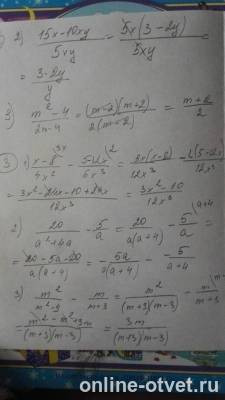 2) (15x-10xy)/(5xy) = (5x(3-2y))/(5xy) =
= (3-2y)/y
3) (m²-4)/(2m-4) = ((m-2)(m+2))/(2(m-2)) = (m+2)/2
3 1) (x-8)/(4x²) - (5-2x)/(6x³) = (3x(x-8))/(12x³) - (2(5-2x))/(12x³)
= (3x²-24x-10+4x)/(12x³) = (3x²-10)/(12x³)
2) 20/(a²+4a) - 5/a = 20/(a(a+4)) - 5/a =
= (20-5a-20)/(a(a+4)) = -5a/(a(a+4)) = -5/(a+4)
3) m²/(m²-9) - m/(m+3) = m²/((m+3)(m-3)) - m/(m+3)
= (m²-m²+3m)/((m+3)(m-3)) = 3m/((m+3)(m-3))
online-otvet.ru